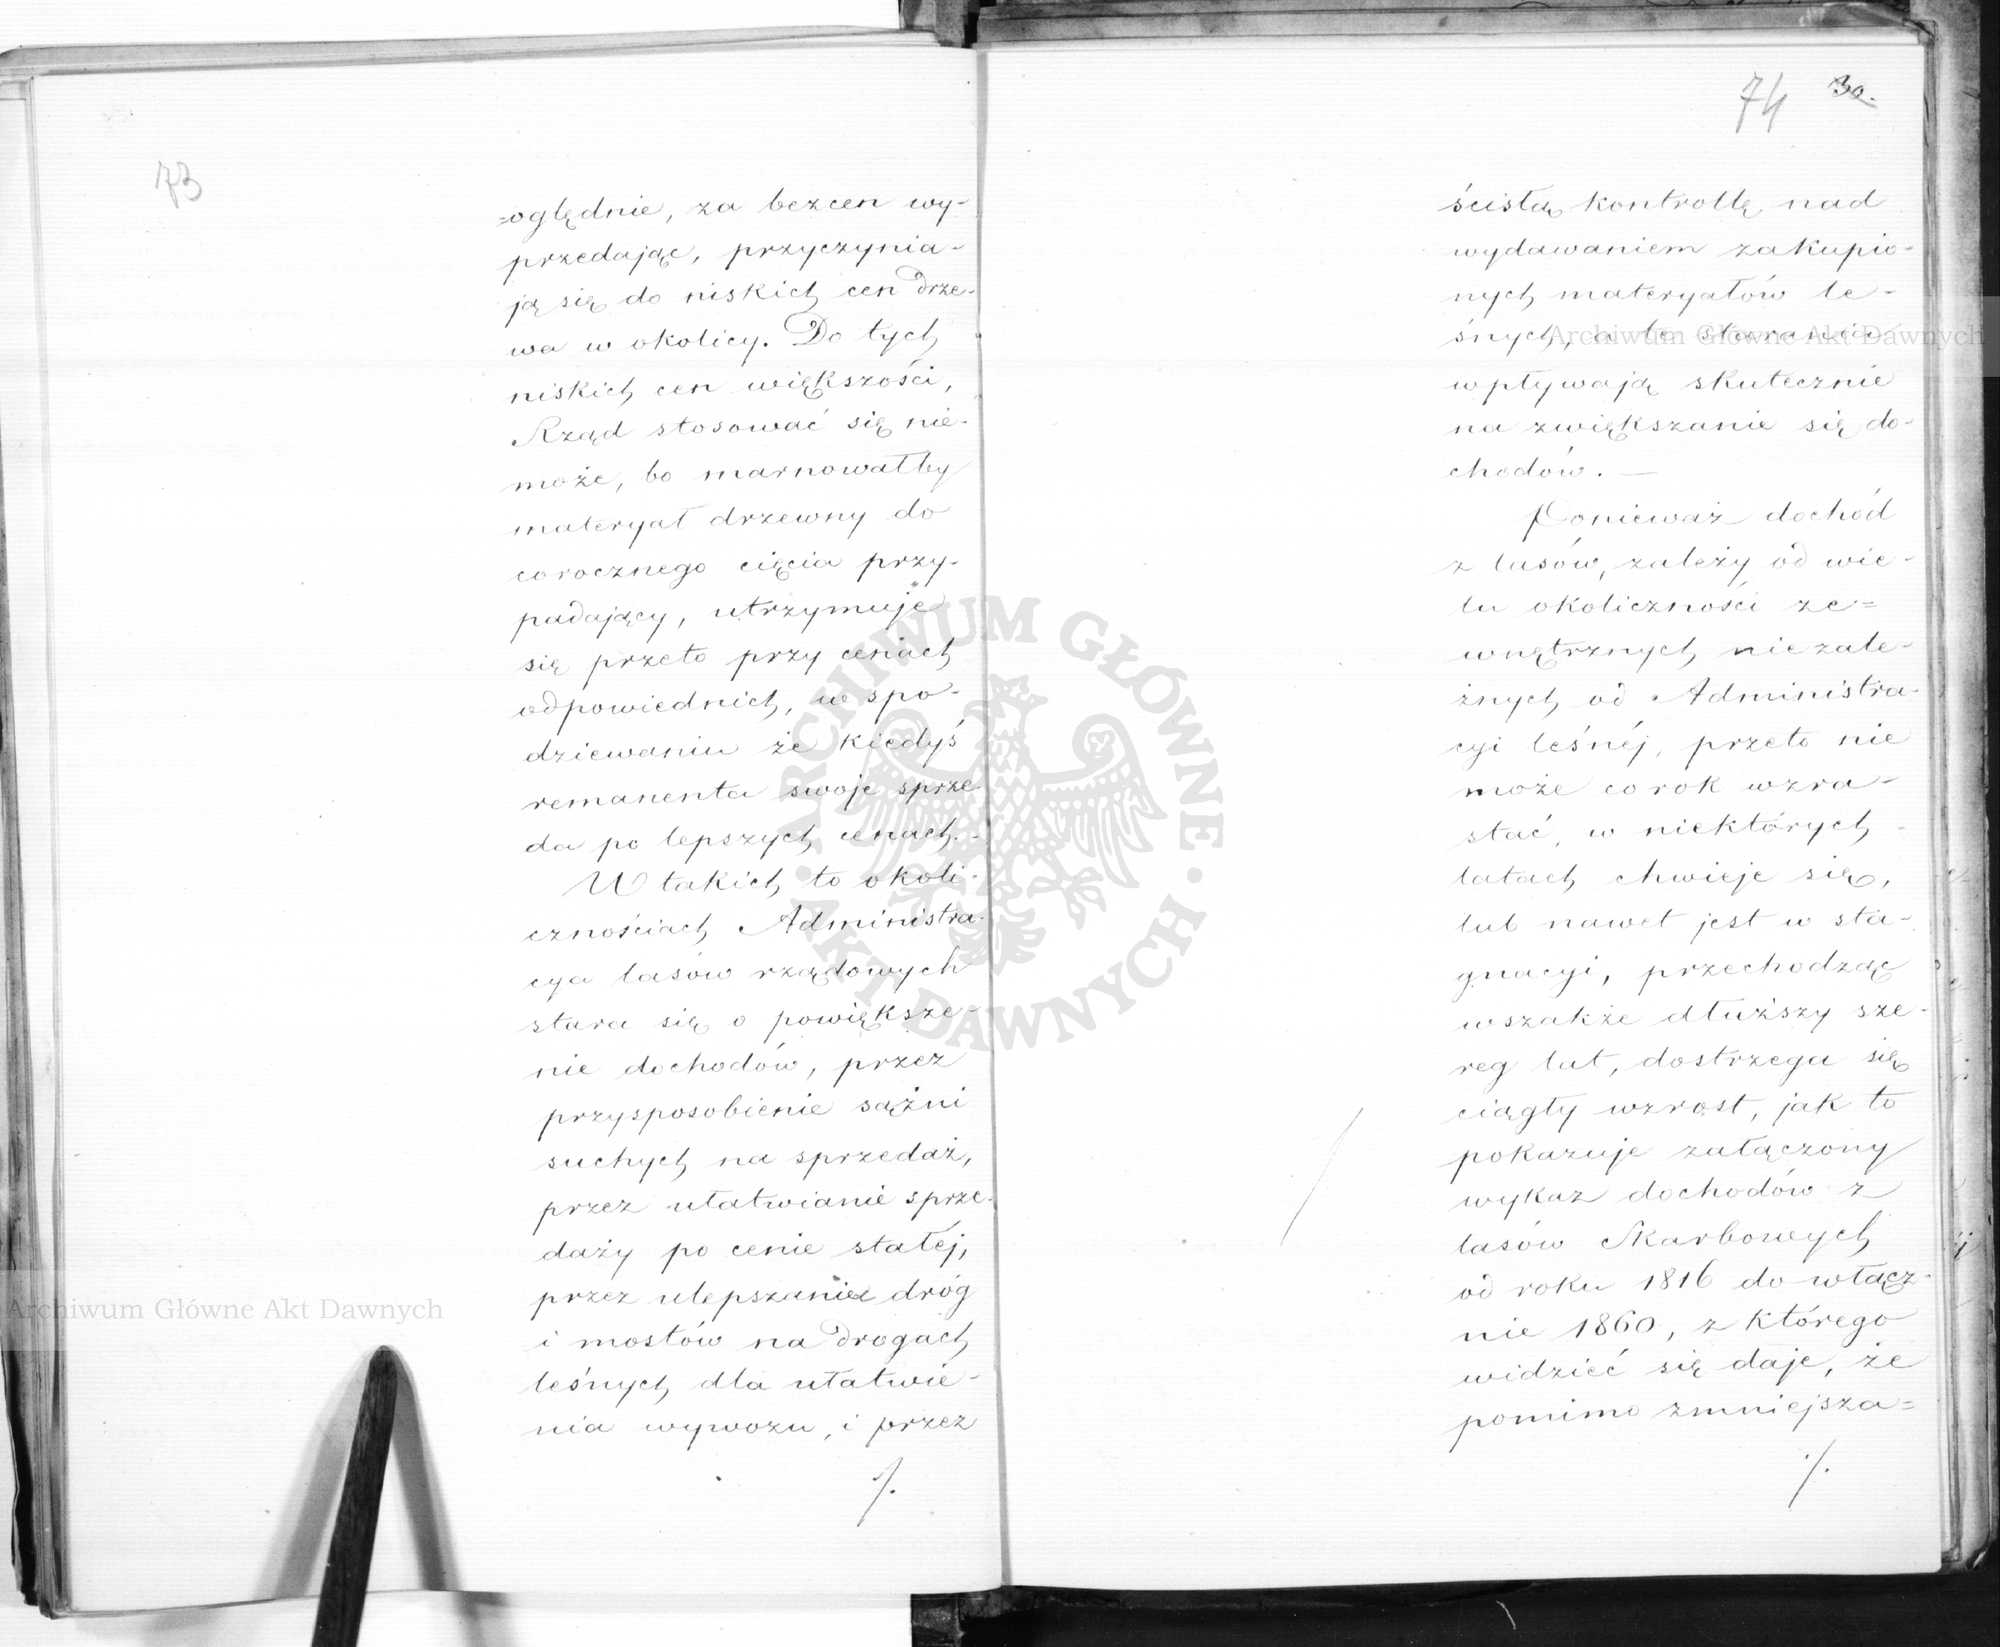 73
=oględnie, za bezcen wy-
przedając, przyczynia-
ją się do niskich cen drze-
wa w okolicy. Do tych
niskich cen większości,
Rząd stosować się nie-
może, bo marnowałby
materyał drzewny do
corocznego cięcia przy-
padający, utrzymuje
się przeto przy cenach
odpowiednich, w spo-
dziewaniu że kiedyś
remanenta swoje sprze-
da po lepszych cenach. -
W takich to okoli-
cznościach Administra-
cya lasów rządowych
stara się o powiększe-
nie dochodów, przez
przysposobienie sążni
suchych na sprzedaż,
przez ułatwianie sprze-
daży po cenie stałéj,
przez ulepszanie dróg
i mostów na drogach
leśnych dla ułatwie-
nia wywozu, i przez
./.
74 30.
ścisłą kontrollę nad
wydawaniem zakupio-
nych materyałów le-
śnych, a te starania
wpływają skutecznie
na zwiększanie się do-
chodów. —
Ponieważ dochód
z lasów, zależy od wie-
lu okoliczności ze=
wnętrznych niezale-
żnych od Administra-
cyi leśnéj, przeto nie
może co rok wzra-
stać, w niektórych
latach chwieje się,
lub nawet jest w sta-
gnacyi, przechodząc
wszakże dłuższy sze-
reg lat, dostrzega się
ciągły wzrost, jak to
pokazuje załączony
wykaz dochodów z
lasów Skarbowych
od roku 1816 do włącz-
nie 1860, z którego
widzieć się daje, że
pomimo zmniejsza=
./.
Archiwum Główne Akt Dawnych
Archiwum Główne Akt Dawnych
ARCHIWUM GŁÓWNE · AKT DAWNYCH ·